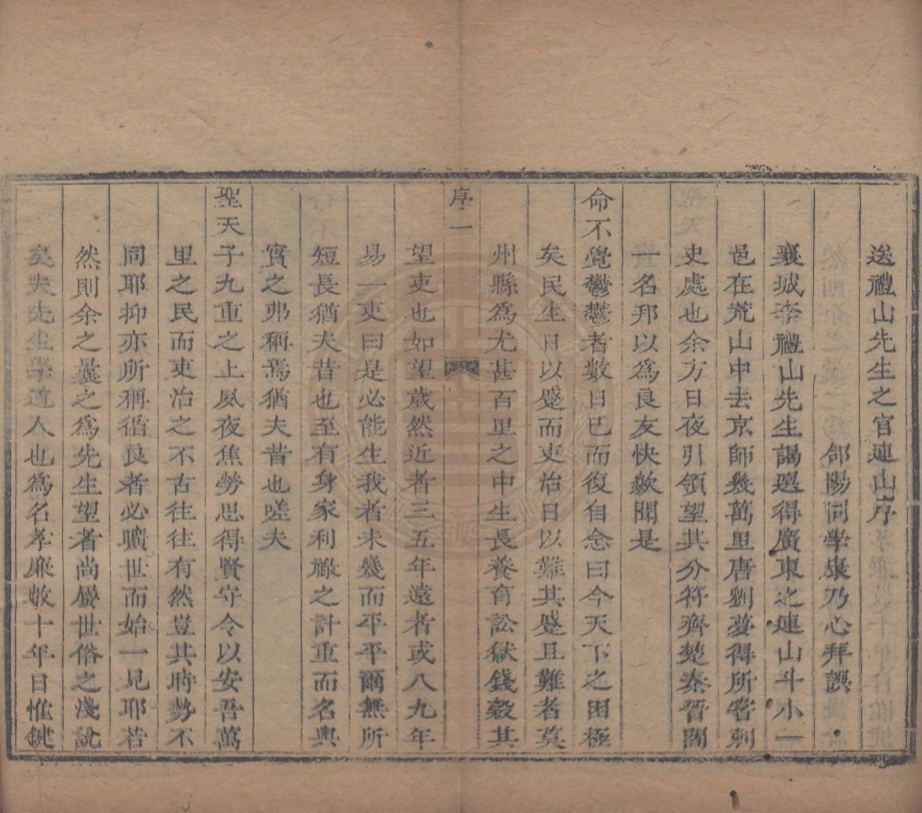 送禮山先生之官連山序
郃陽同學康乃心拜譔
襄城李禮山先生謁選得廣東之連山斗小一
邑在荒山中去京師幾萬里唐劉夢得所嘗刺
史處也余方日夜引領望其分符齊楚秦晉間
一名邦以為良友快歘聞是
命不覺鬱鬱者數日已而復自念曰今天下之困極
矣民生日以蹙而吏治日以難其蹙且難者莫
州縣為尤甚百里之中生長養育訟獄錢穀其
序一
望吏也如望歲然近者三五年遠者或八九年
易一吏曰是必能生我者未幾而平平爾無所
短長猶夫昔也至有身家利祿之計重而名與
實之弗稱焉猶夫昔也嗟夫
聖天子九重之上夙夜焦勞思得賢守令以安吾萬
里之民而吏治之不古往往有然豈其時勢不
同耶抑亦所稱循良者必曠世而始一見耶若
然則余之曩之為先生望者尚屬世俗之淺說
矣夫先生學道人也為名孝廉數十年日惟鍵